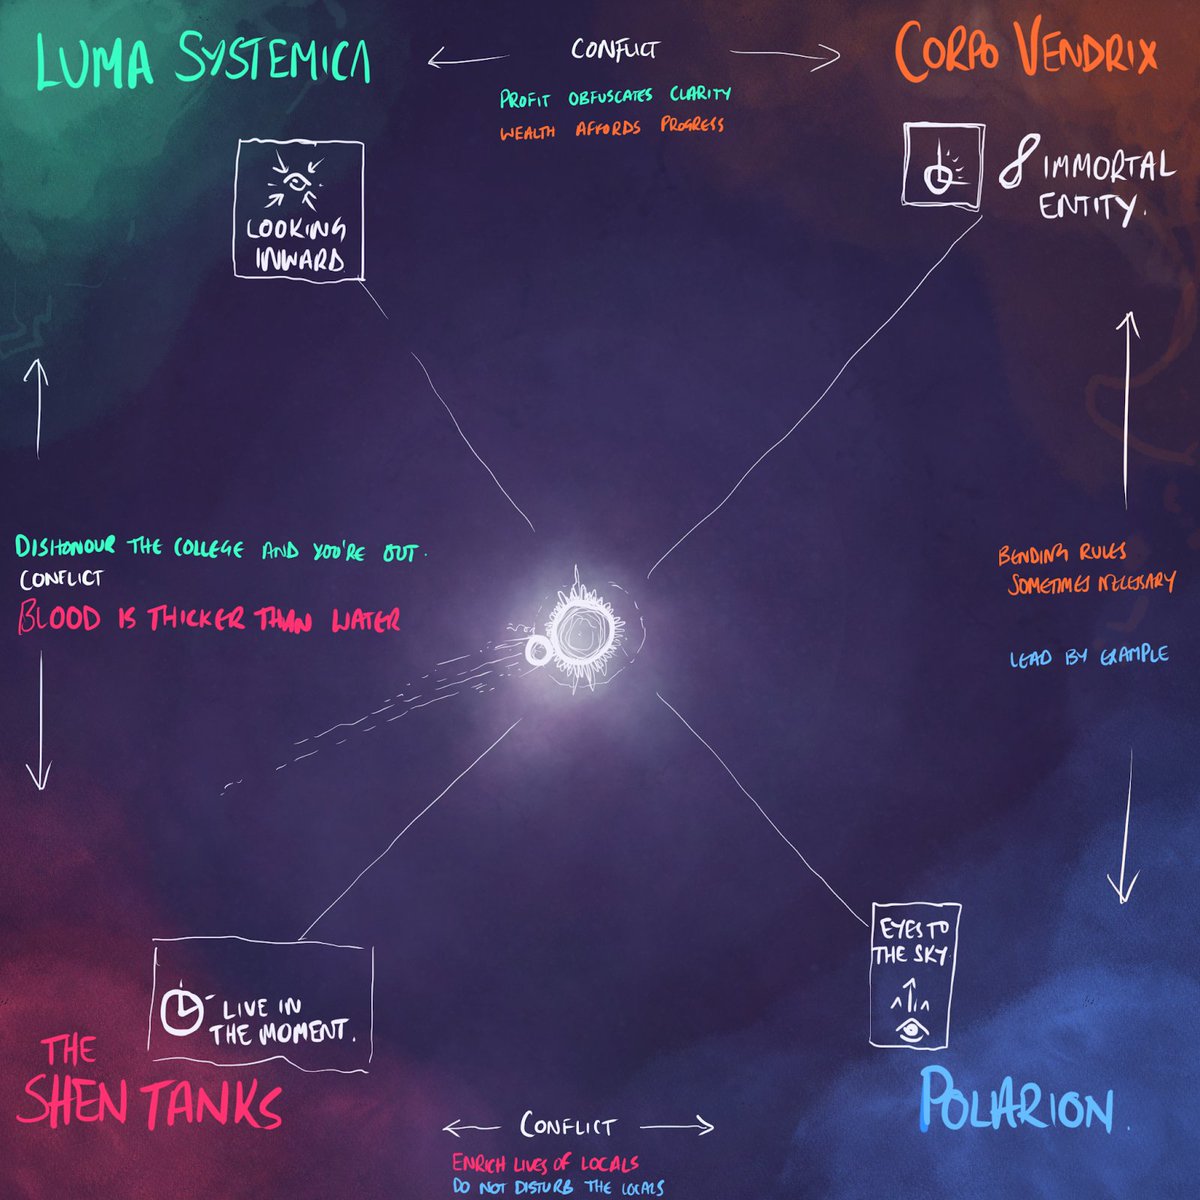 LUMA SYSTEMICA
CONFLICT
CORPO VENDRIX
PROFIT OBFUSCATES CLARITY
WEALTH AFFORDS PROGRESS
LOOKING
INWARD
IMMORTAL
ENTITY.
DISHONOUR THE COLLEGE AND YOU'RE OUT.
CONFLICT
BLOOD IS THICKER THAN WATER
BENDING RULES
SOMETIMES NECESSARY
LEAD BY EXAMPLE
EYES TO
THE SKY
LIVE IN
THE MOMENT.
THE
SHEN TANKS
POLARION.
CONFLICT
ENRICH LIVES OF LOCALS
DO NOT DISTURB THE LOCALS